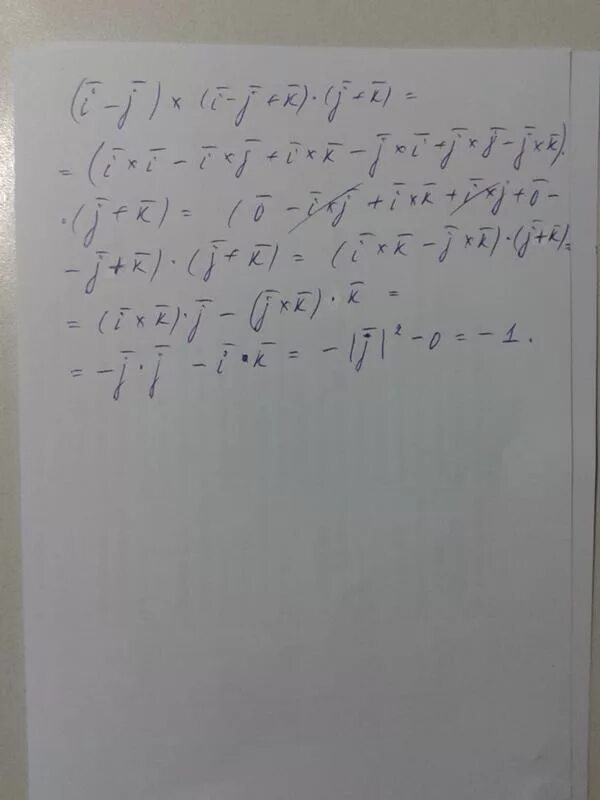 (i̅ - j̅) × (i̅ - j̅ + k̅) · (j̅ + k̅) =
= (i̅ × i̅ - i̅ × j̅ + i̅ × k̅ - j̅ × i̅ + j̅ × j̅ - j̅ × k̅) ·
· (j̅ + k̅) = (0̅ - i̅ × j̅ + i̅ × k̅ + i̅ × j + 0̅ -
- j̅ × k̅) · (j̅ + k̅) = (i̅ × k̅ - j̅ × k̅) · (j̅ + k̅) =
= (i̅ × k̅) · j̅ - (j̅ × k̅) · k̅ =
= - j̅ · j̅ - i̅ · k̅ = - |j̅|² - 0 = - 1.